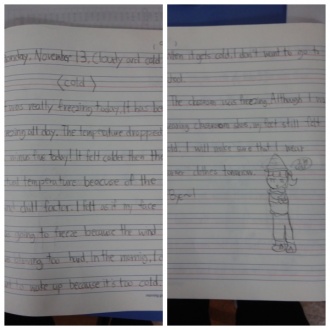 onday, November 13. Cloudy and cold
<cold>
was really freezing today. It has be
eezing all day. The temperature dropped
minus five today! It felt colder than the
temperature because of the
chill factor. I felt as if my face
going to freeze because the wind
too hard. In the morning, I
to wake up because it's too cold.
When it gets cold, I don't want to go to
The classroom was freezing. Although I was
wearing shoes, my feet still felt
cold. I will make sure that I wear
clothes tomorrow.